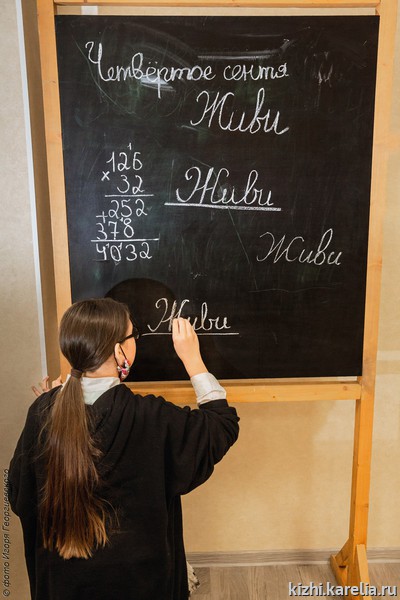 Четвёртое сентя
Живи
126
× 32
252
+ 378
4032
Живи
Живи
Живи
© фото Игоря Георгиевского
kizhi.karelia.ru